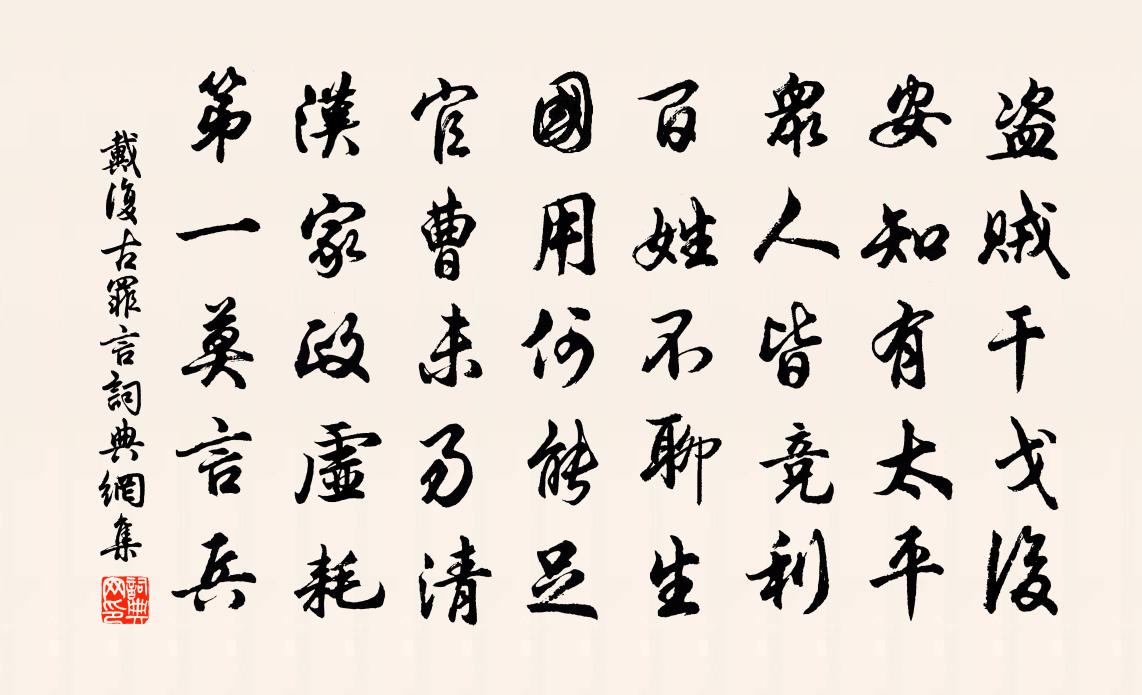 盗賊干戈後
安知有太平
衆人皆競利
百姓不聊生
國用何能足
官曹未易清
漢家政虛耗
第一莫言兵
戴復古罪言詞典網集
詞典网印